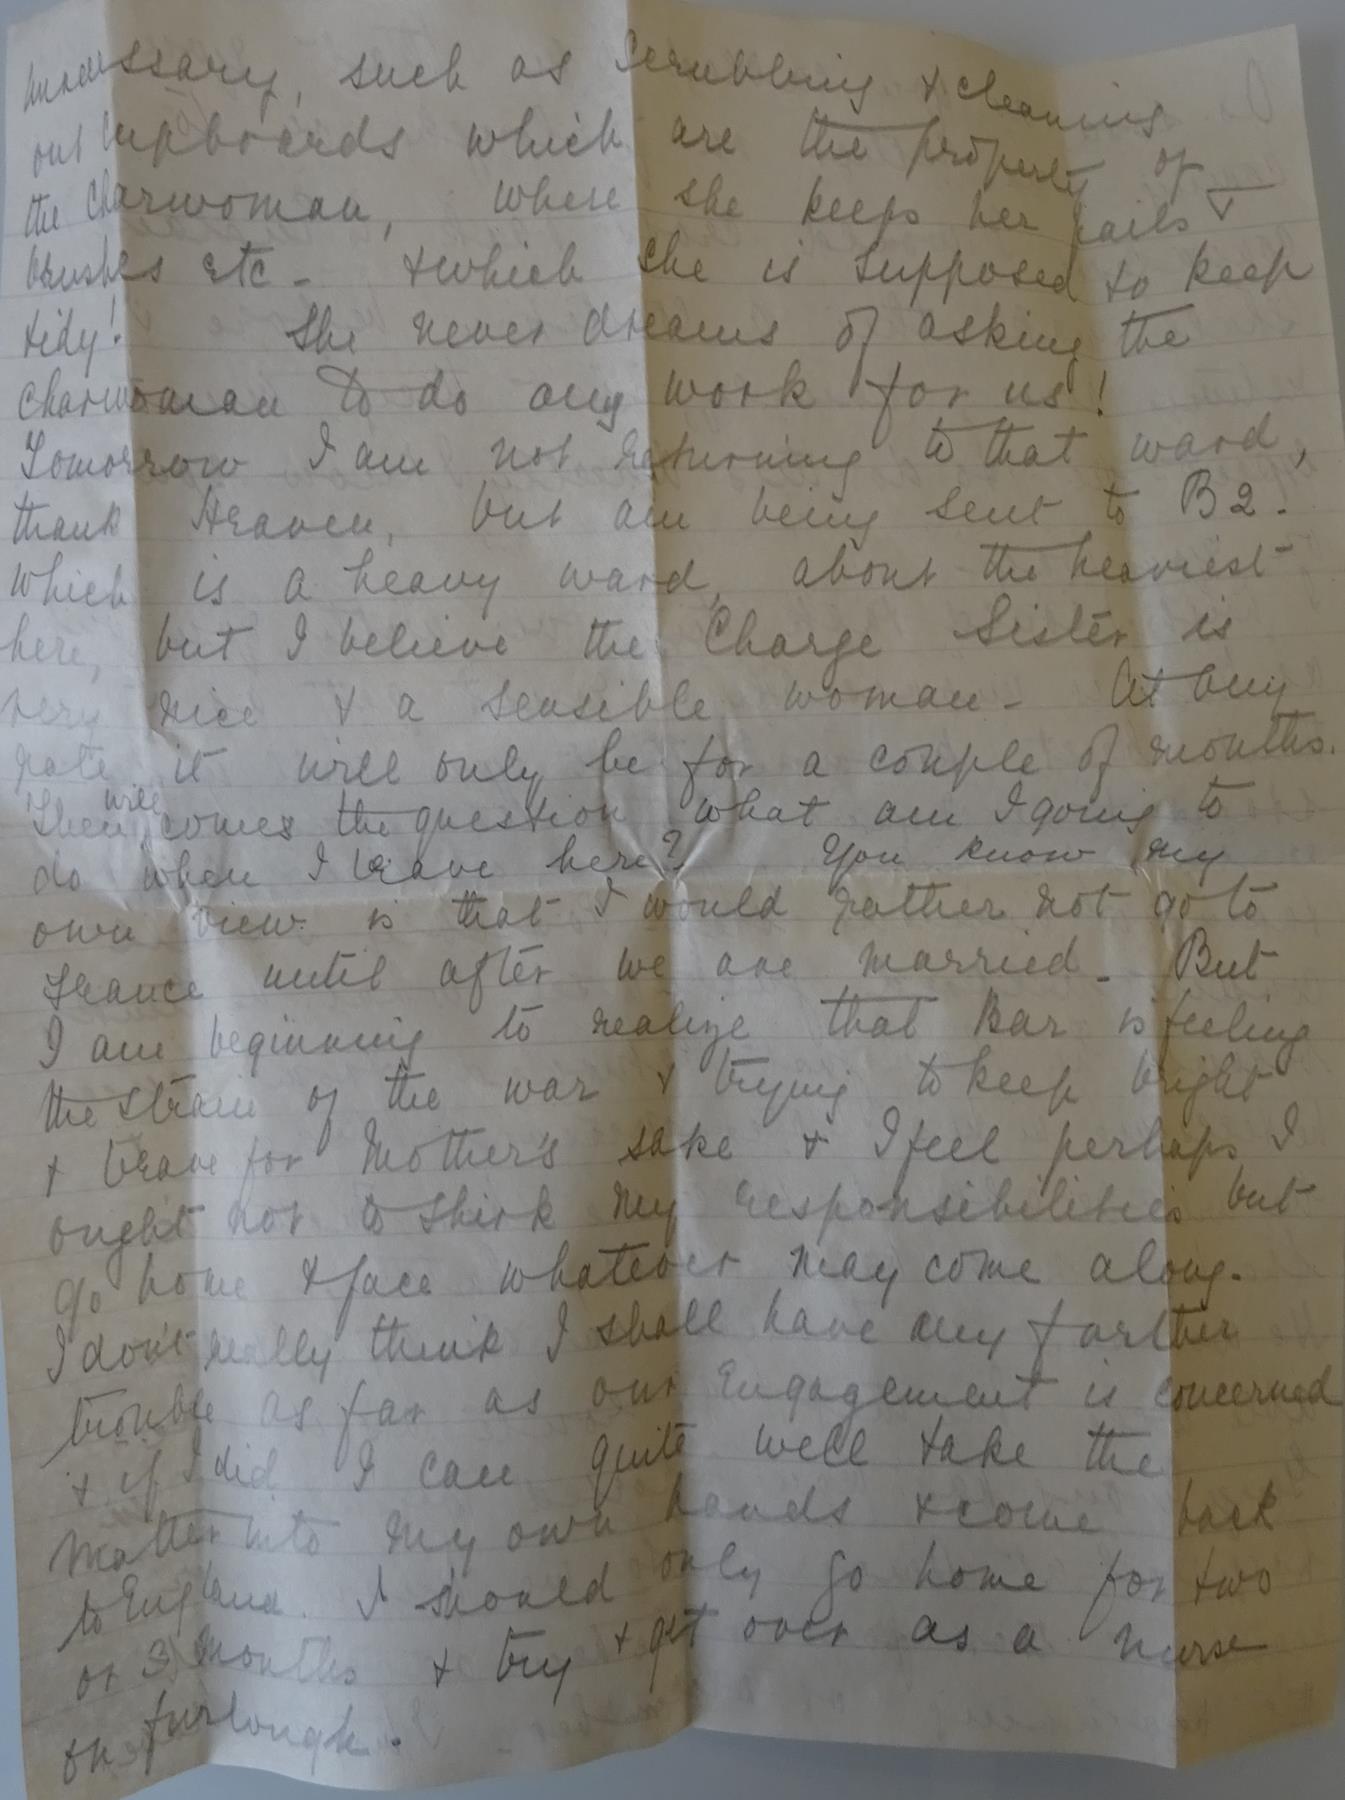 unnecessary, such as scrubbing & cleaning
out cupboards which are the property of
the charwoman, where she keeps her pails &
brushes etc - & which she is supposed to keep
tidy! She never dreams of asking the
charwoman to do any work for us!
Tomorrow I am not returning to that ward,
thank Heaven, but am being sent to B2.
which is a heavy ward, about the heaviest
here, but I believe the Charge Sister is
very nice & a sensible woman - At any
rate it will only be for a couple of months.
Then will comes the question what am I going to
do when I leave here? You know my
own view is that I would rather not go to
France until after we are married - But
I am beginning to realize that Bar is feeling
the strain of the war & trying to keep bright
& brave for Mother's sake & I feel perhaps I
ought not to shirk my responsibilities but
go home & face whatever may come along.
I don't really think I shall have any further
trouble as far as our Engagement is concerned
& if I did I can quite well take the
matter into my own hands & come back
to England. I should only go home for two
or 3 months & try & get over as a nurse
on furlough.